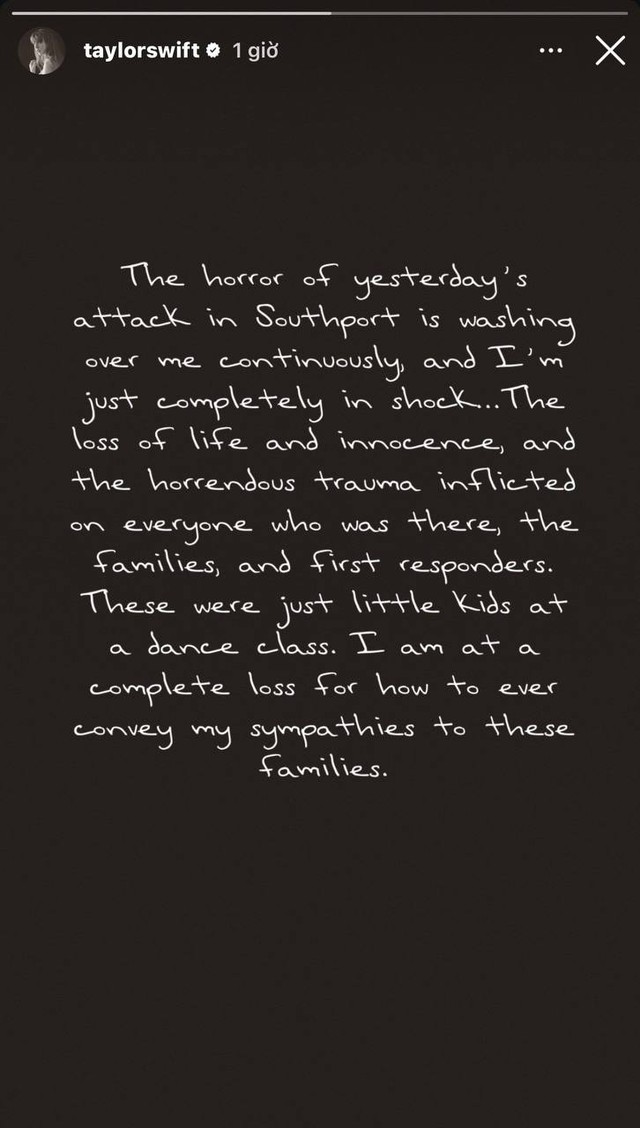 taylorswift 1 giờ
The horror of yesterday's
attack in Southport is washing
over me continuously, and I'm
just completely in shock...The
loss of life and innocence, and
the horrendous trauma inflicted
on everyone who was there, the
families, and first responders.
These were just little kids at
a dance class. I am at a
complete loss for how to ever
convey my sympathies to these
families.